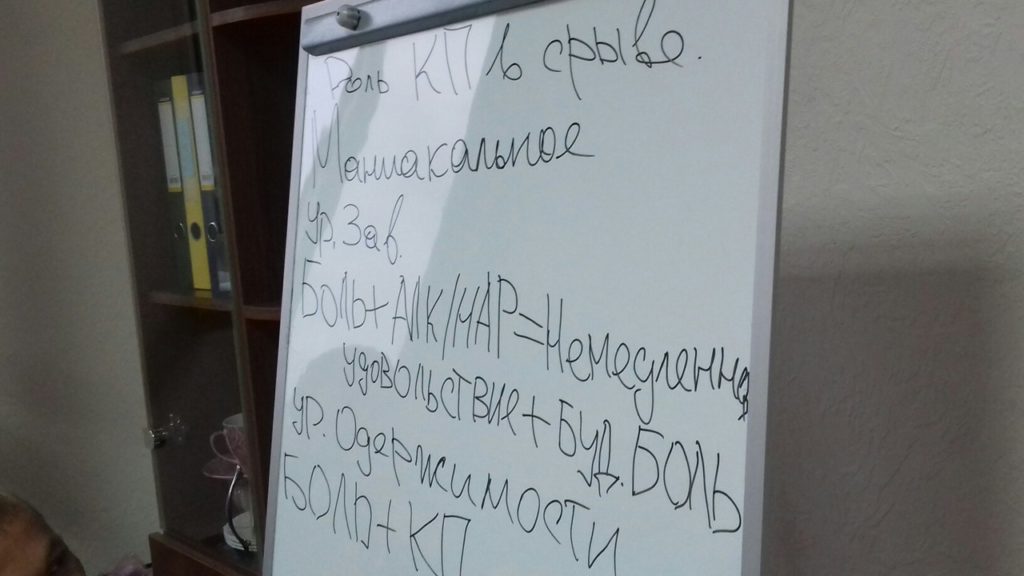 Роль КП в срыве.
Маниакальное
Ур. Зав.
Боль + АЛК/НАР = Немедленно
удовольствие + Буд. Боль
ур. Одержимости
Боль + КП